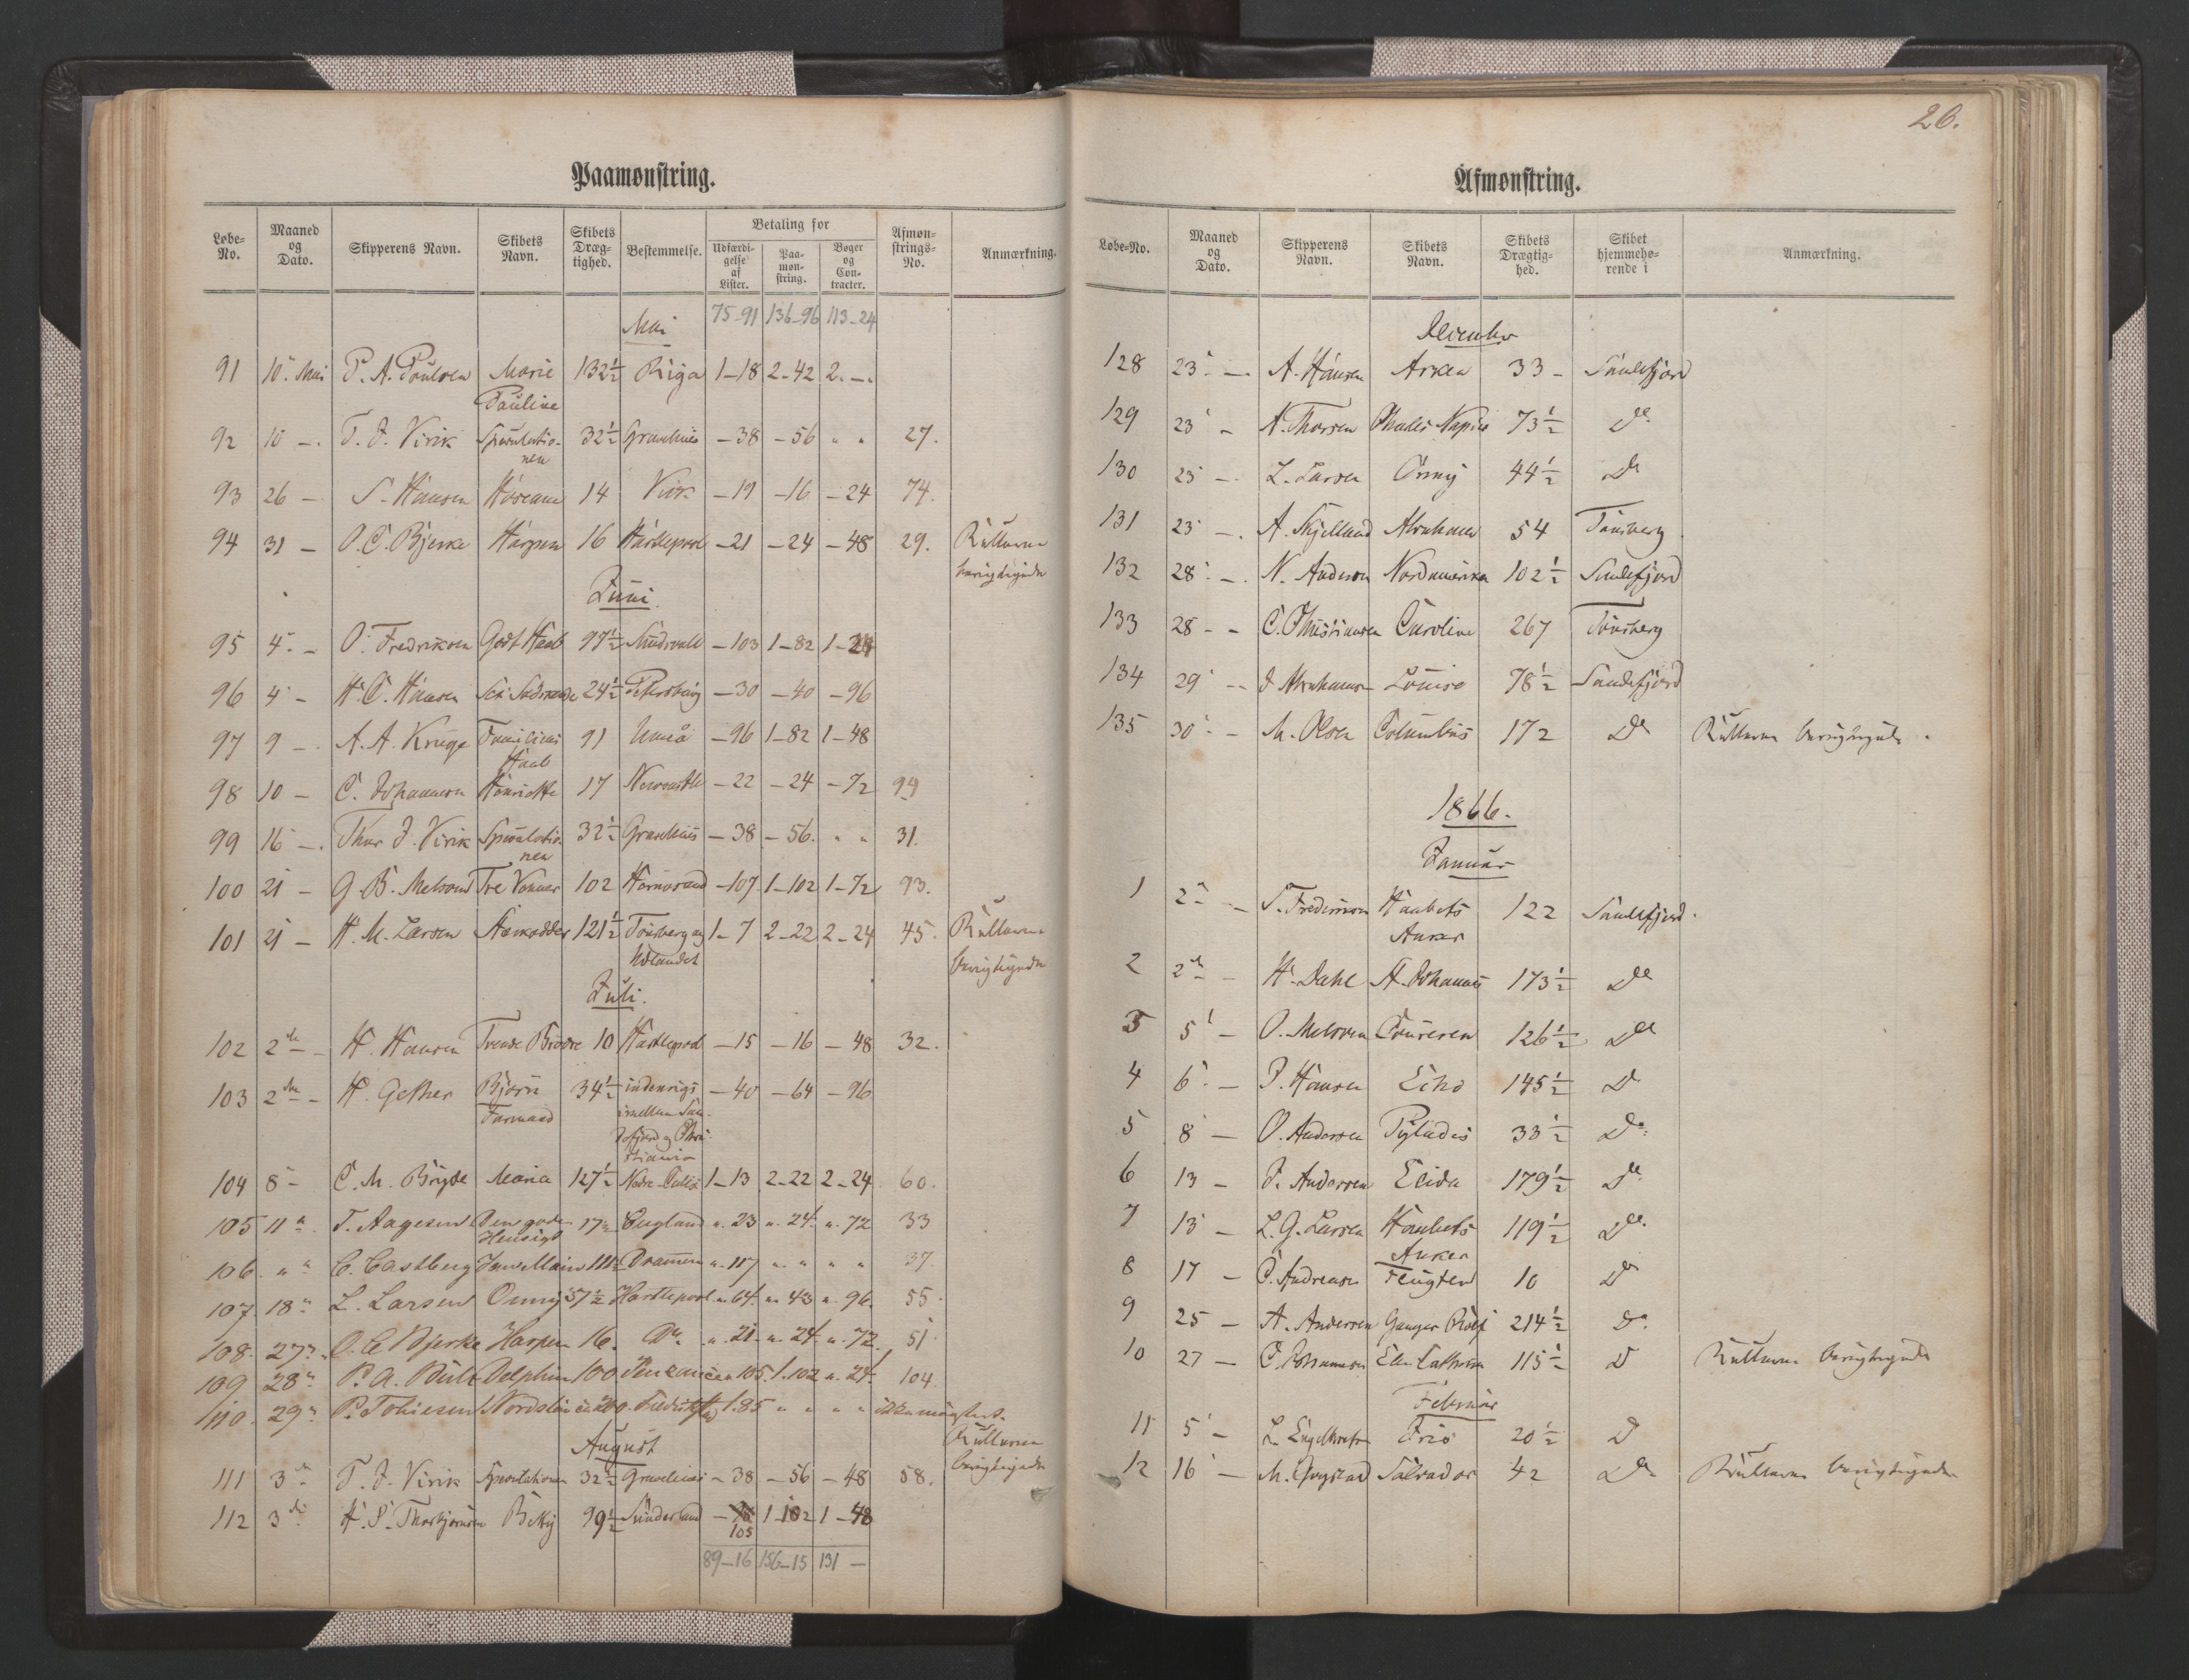 Paamønstring.
Løbe-No. Maaned og Dato. Skipperens Navn. Skibets Navn. Skibets Dræg-tighed. Bestemmelse. Betaling for Udfærdi-gelse af Lister. Paa-møn-string. Bøger og Con-tracter. Afmøn-strings-No. Anmærkning.
Mai 75-91 136-96 113-24
91 10. Mai P. A. Paulsen Marie Pauline 132½ Riga 1-18 2-42 2.-.
92 10 -. T. J. Virik Speculatio-nen 32½ -38 -56 " " 27.
93 26 - S. Hansen 14 -19 -16 -24 74.
94 31 - O. C. Bjerke Harpen 16 Hartlepool -21 -24 -48 29. Rullerne berigtigede
Juni.
95 4. - O. Fredriksen Godt Haab 97½ Sundsvall -103 1-82 1-24
96 4 - H. C. Hansen 24½ Petersburg -30 -40 -96
97 9 -. A. A. Kruge Familiens Haab 91 Umeå -96 1-82 1-48
98 10 - C. Johannesen Henriette 17 Newcastle -22 -24 -72 99
99 16 -. Thor J. Virik Speculatio-nen 32½ -38 -56. " " 31.
100 21 - G. B. Melsom Tre Venner 102 Hernøsand -107 1-102 1-72 93.
101 21 - H. M. Larsen 121½ Tønsberg og Udlandet 1-7 2-22 2-24 45. Rullerne berigtigede
Juli.
102 2de - H. Hansen Trende Brødre 10 Hartlepool -15 -16 -48 32.
103 2den - H. Gether Bjørn Farmand 34½ indenrigs imellem San-defjord og Chri-stiania -40 -64 -96
104 8 - C. M. Bryde Maria 127½ 1-13 2-22 2-24 60.
105 11 " T. Aagesen Den gode Hensigt 17 England ". 23 ". 24 ". 72 33
106. " " C. Castberg 111½ Drammen ". 117 " " " " 37.
107. 18 " L. Larsen Onny 37½ Hartlepool ". 64 ". 43 ". 96. 55.
108. 27 ". O. C. Bjerke Harpen 16. Do. ". 21. ". 24 ". 72. 51
109 28 " P. A. Delphin 100 105. 1.102 ". 24. 104
110. 29 " P. Tobiesen 1.85 " " " " ikke
August Rullerne berigtigede
111 3 - T. J. Virik Speculationen 32½ - 38 -56 -48 58.
112 3de H. S. Thorbjørnsen Betty 99½ Sunderland -105 1-102 1-48
89-16 156-15 131 -
26.
Afmønstring.
Løbe-No. Maaned og Dato. Skipperens Navn. Skibets Navn. Skibets Drægtig-hed. Skibet hjemmehø-rende i Anmærkning.
December
128 23 - A. Hansen 33 - Sandefjord
129 23 - A. Thorsen Charles Napier 73½ Do
130 23 -. L. Larsen Onny 44½ Do
131 23 -. A. Skjelland Abraham 54 Tønsberg
132 28 -. N. Andersen Nordamerika 102½ Sandefjord
133 28 - - C. Christiansen Caroline 267 Tønsberg
134 29 -- J Abrahamsen Louise 78½ Sandefjord
135 30 - M. Olsen Columbus 172 Do Rullerne berigtigede.
1866.
Januar
1 2 - S. Frederiksen Haabets Anker 122 Sandefjord.
2 2de - H. Dahl A. Johannes 173½ Do
3 5 - O. Melsom 126½ Do
4 6 - P. Hansen Echo 145½ Do
5 8 - O. Andersen Pylades 33½ Do
6 13 - J. Andersen Elida 179½ Do
7 13 - L. G. Larsen Haabets Anker 119½ Do.
8 17 - C. Andreasen Flugten 10 Do
9 25 - A. Andersen Ganger Rolf 214½ Do
10 27 - C. Johannesen Elen Cathrine 115½ Do Rullerne berigtigede
Februar
11 5 - L. Engelbretsen Frid 20½ Do
12 16 - M. Salvador 42 Do Rullerne berigtigede